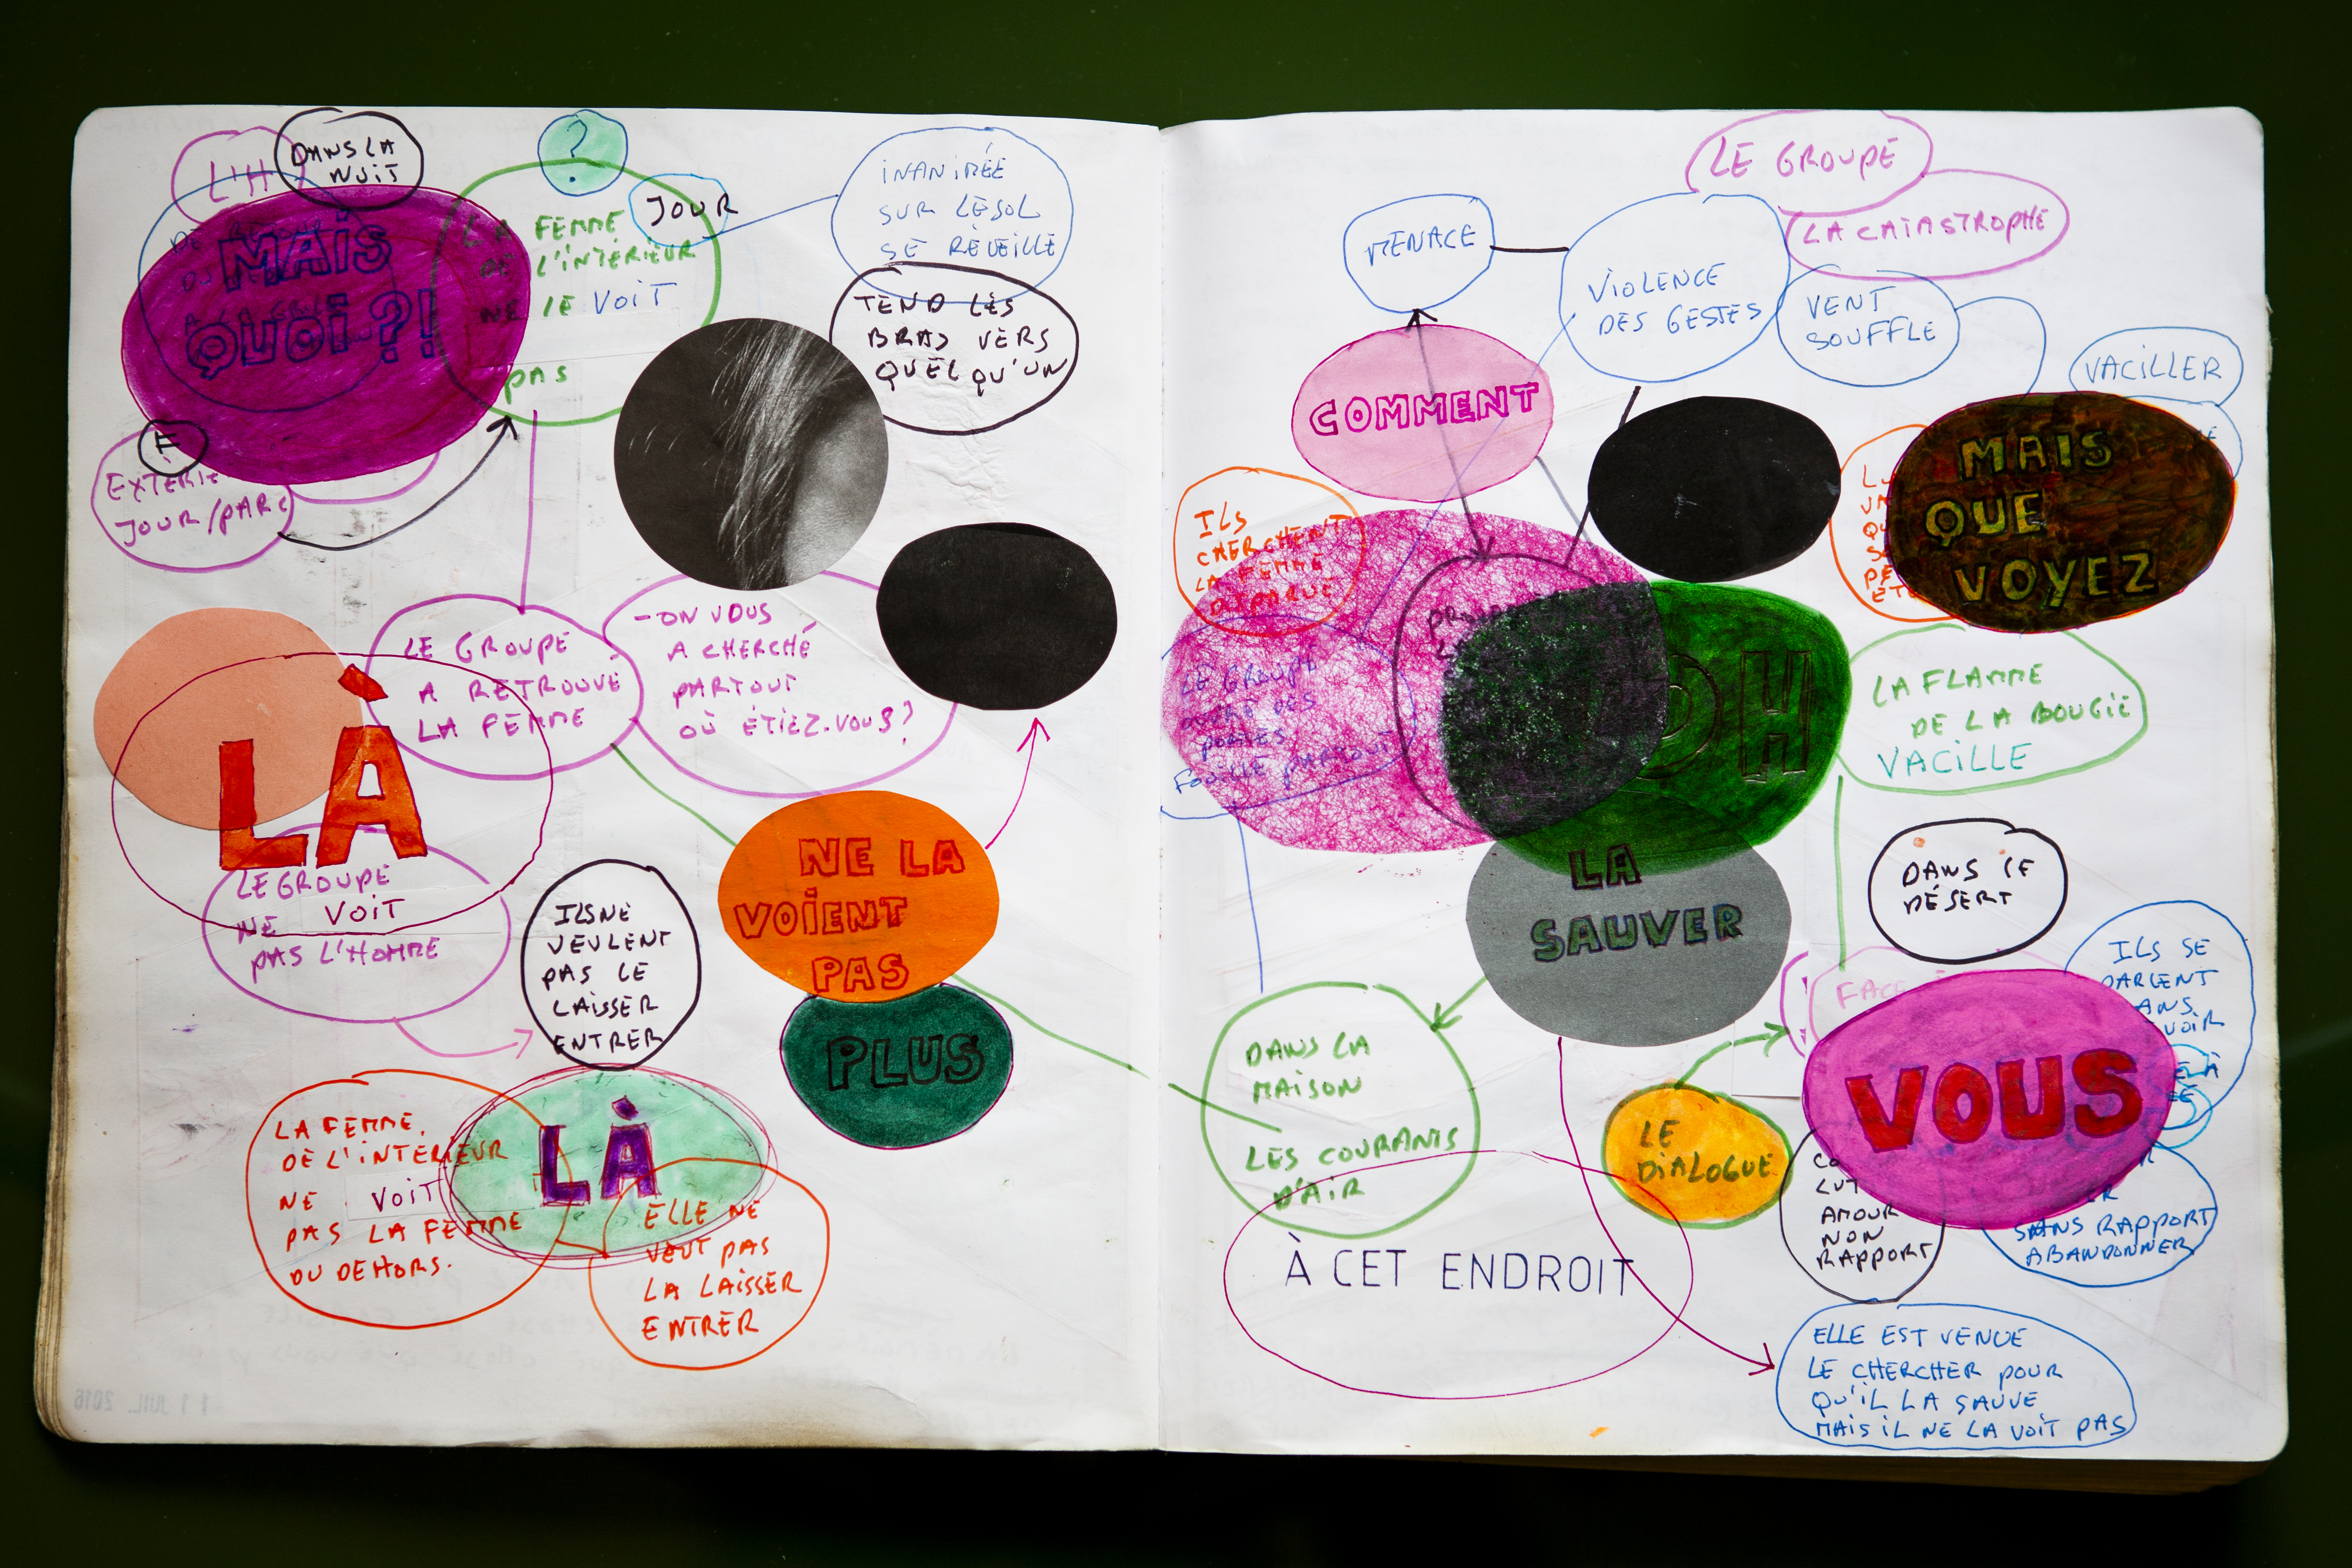 L'H
DANS LA
NUIT
MAIS
QUOI?!
?
LA FEMME
DE L'INTÉRIEUR
NE LE VOIT
PAS
JOUR
INANIMÉE
SUR LE SOL
SE RÉVEILLE
TEND LES
BRAS VERS
QUELQU'UN
E
JOUR/PARC
LE GROUPE
A RETROUVÉ
LA FEMME
- ON VOUS
A CHERCHÉ
PARTOUT
OÙ ÉTIEZ-VOUS?
LÀ
LE GROUPE
NE VOIT
PAS L'HOMME
ILS NE
VEULENT
PAS LE
LAISSER
ENTRER
NE LA
VOIENT
PAS
PLUS
LA FEMME
DE L'INTERIEUR
NE VOIT
PAS LA FEMME
DU DEHORS.
LÀ
ELLE NE
VEUT PAS
LA LAISSER
ENTRER
11 JUIL. 2016
LE GROUPE
LA CATASTROPHE
MENACE
VIOLENCE
DES GESTES
VENT
SOUFFLE
VACILLER
COMMENT
MAIS
QUE
VOYEZ
ILS
CHERCHENT
LA FEMME
DISPARUE
LE GROUPE
OUVRE DES
PORTES
FOUILLE PARTOUT
OH
LA FLAMME
DE LA BOUGIE
VACILLE
LA
SAUVER
DANS LE
DÉSERT
ILS SE
PARLENT
FACE
VOUS
DANS LA
MAISON
LES COURANTS
D'AIR
LE
DIALOGUE
AMOUR
NON
RAPPORT
SANS RAPPORT
ABANDONNER
À CET ENDROIT
ELLE EST VENUE
LE CHERCHER POUR
QU'IL LA SAUVE
MAIS IL NE LA VOIT PAS